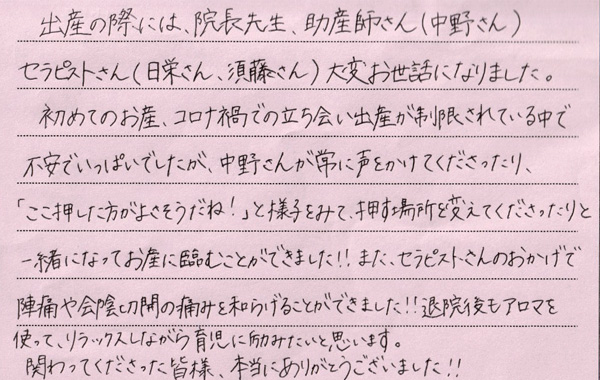 出産の際には、院長先生、助産師さん(中野さん)
セラピストさん(日栄さん、須藤さん)大変お世話になりました。
初めてのお産、コロナ禍での立ち会い出産が制限されている中で
不安でいっぱいでしたが、中野さんが常に声をかけてくださったり、
「ここ押した方がよさそうだね!」と様子をみて、押す場所を変えてくださったりと
一緒になってお産に臨むことができました!!また、セラピストさんのおかげで
陣痛や会陰切開の痛みを和らげることができました!!退院後もアロマを
使って、リラックスしながら育児に励みたいと思います。
関わってくださった皆様、本当にありがとうございました!!